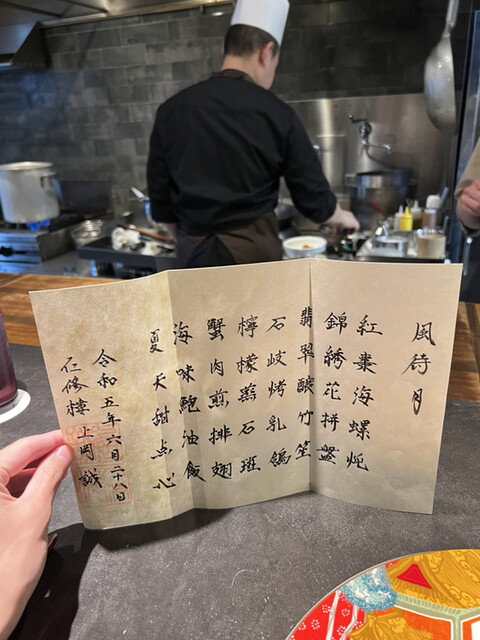 風待月
紅棗海螺炖
錦綉花拼盤
翡翠釀竹笙
石岐烤乳鴿
檸檬蒸石斑
蟹肉煎排翅
海味鮑油飯
夏天甜点心
令和五年六月二十八日
仁修樓 上岡 誠